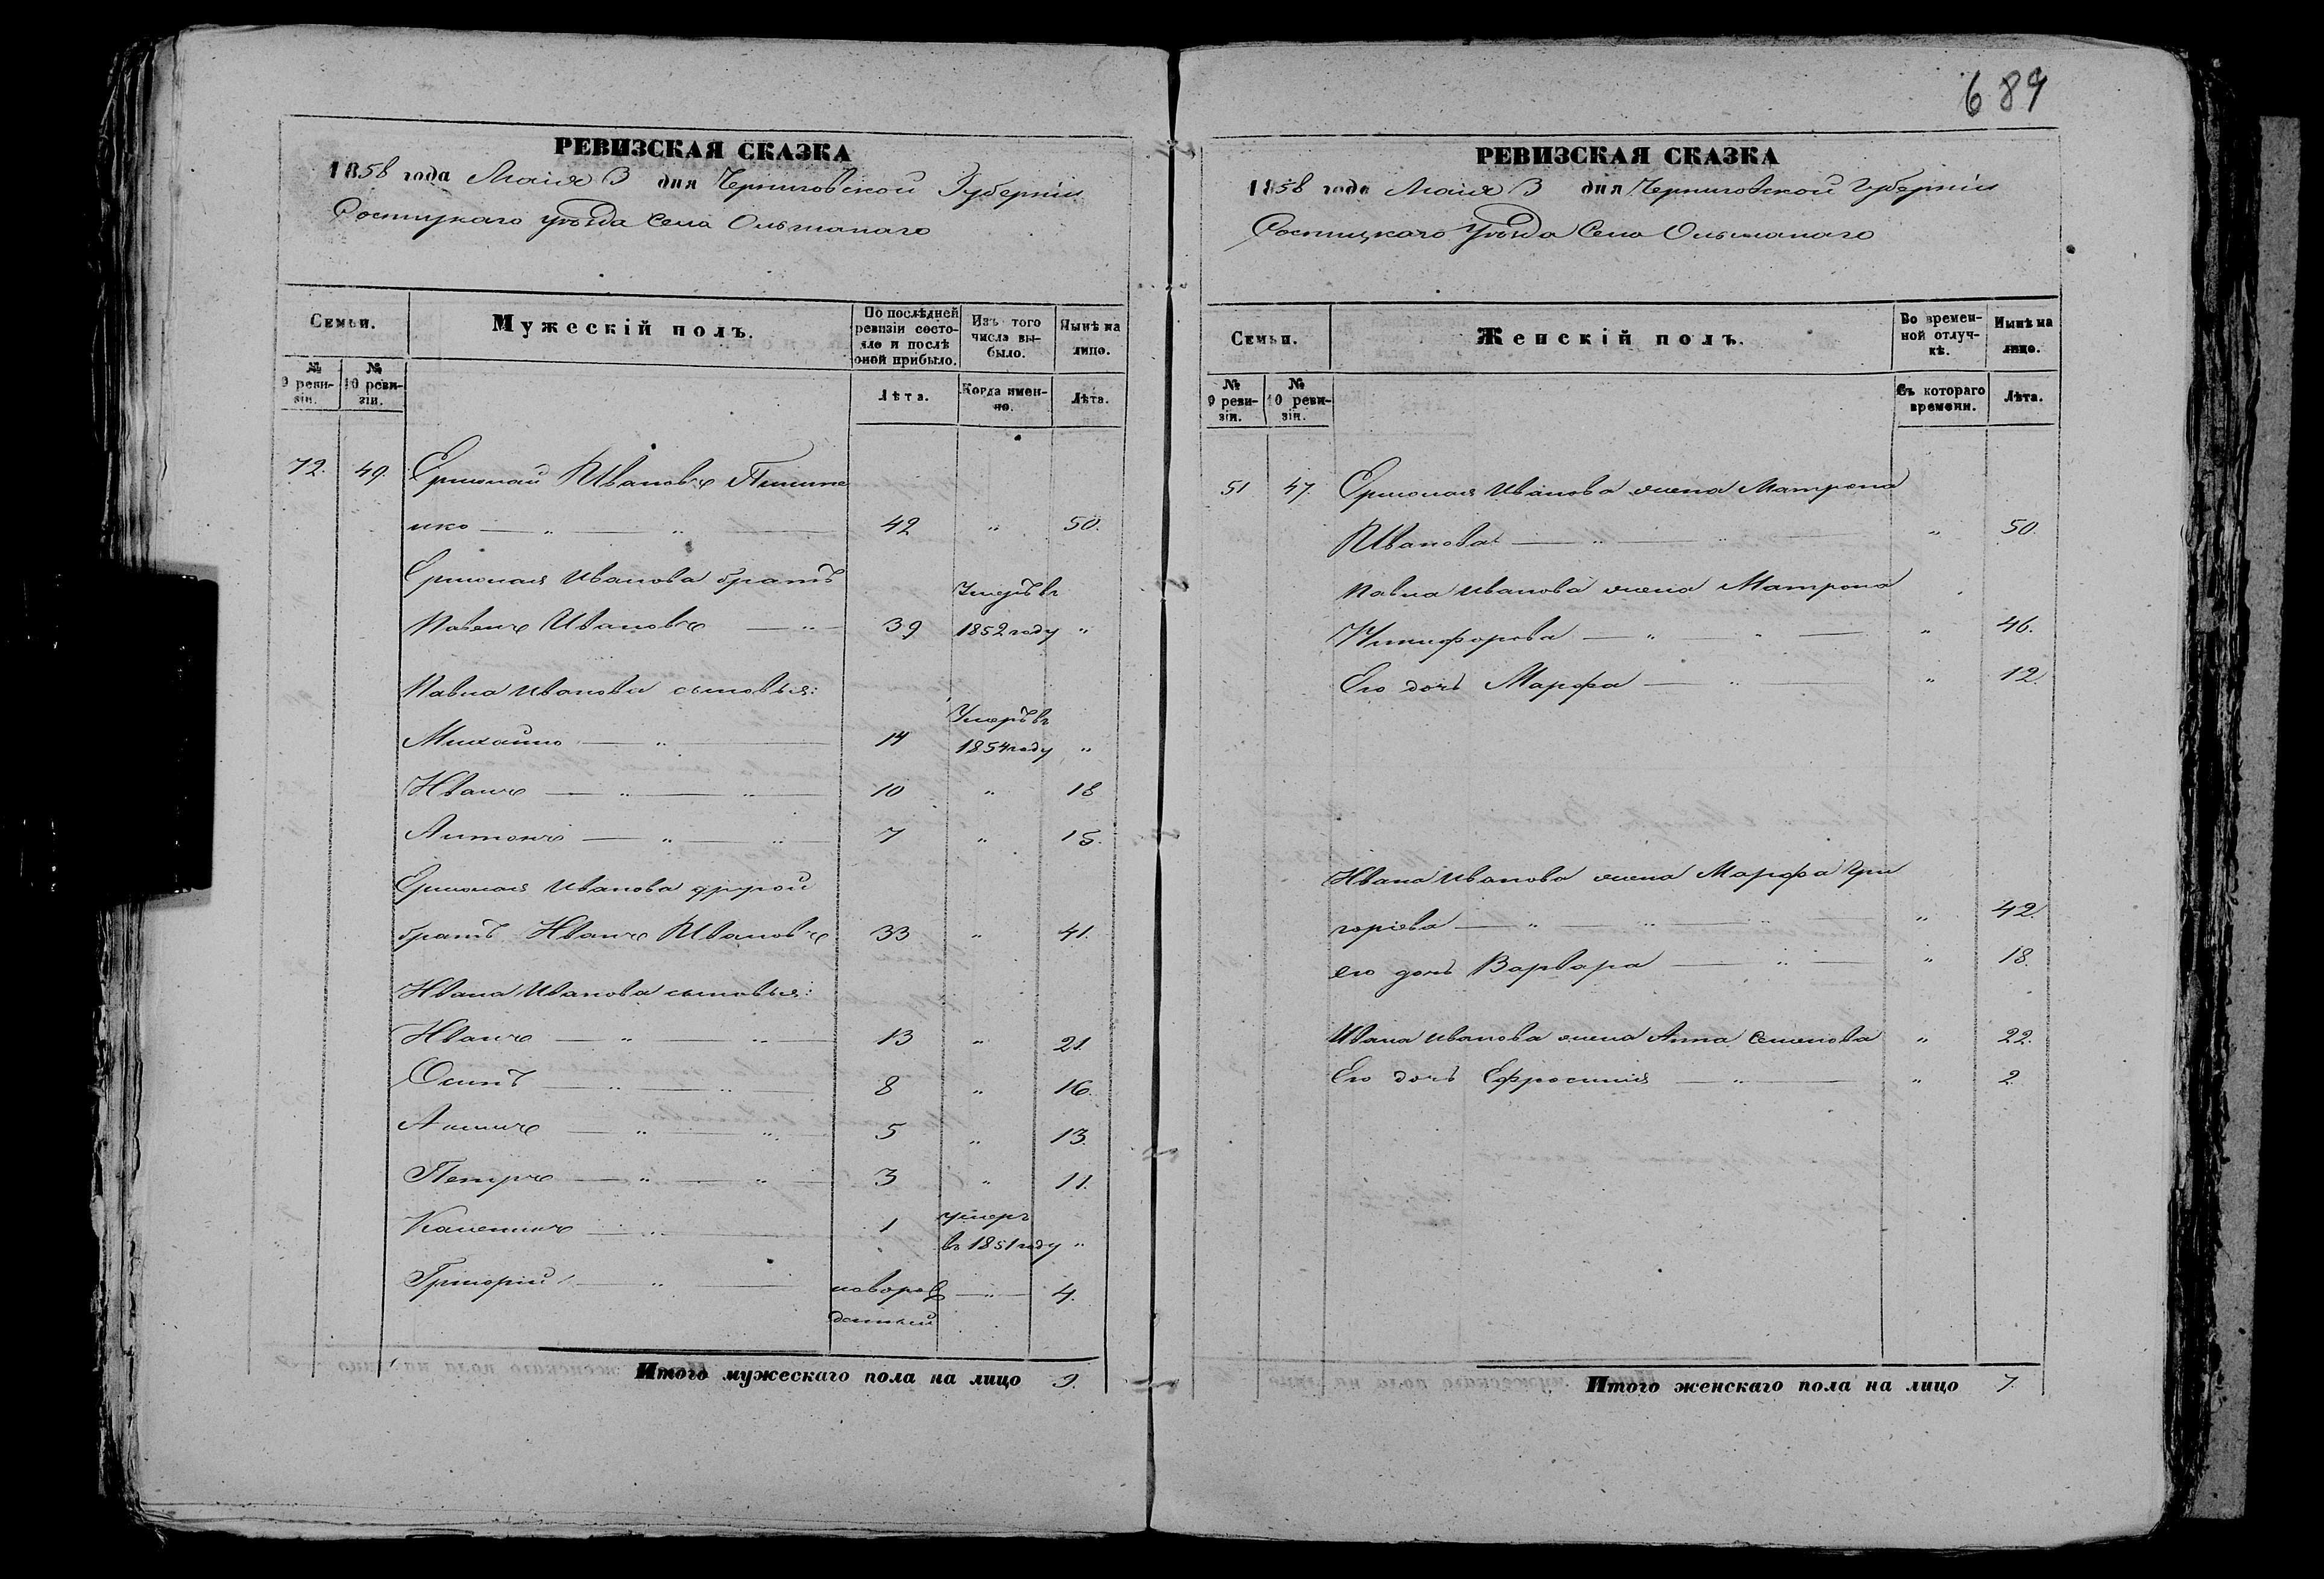 689
РЕВИЗСКАЯ СКАЗКА
1858 года Маія 3 дня Черниговской Губерніи
уѣзда Села Ольшанаго
Семьи.
Мужескій полъ.
По послѣдней ревизіи состояло и послѣ оной прибыло.
Изъ того числа выбыло.
Нынѣ на лицо.
№ 9 ревизіи.
№ 10 ревизіи.
Лѣта.
Когда именно.
Лѣта.
72. 49. Ермолай Ивановъ
42 " 50.
Ермолая Иванова братъ
Павелъ Ивановъ — " 39 Умеръ въ 1852 году "
Павла Иванова сыновья:
Михайло — " — 14 Умеръ въ 1854 году "
Иванъ — " — " 10 " 18
Антонъ — " — " 7 " 15.
Ермолая Иванова другой
братъ Иванъ Ивановъ 33 " 41.
Ивана Иванова сыновья:
Иванъ — " — " — 13 " 21.
Осипъ — " — " 8 " 16.
— " — " 5 " 13.
Петръ — " — " — 3 " 11.
1 умеръ въ 1851 году "
Григорій — " — новорожденный — " — 4.
Итого мужескаго пола на лицо 9.
РЕВИЗСКАЯ СКАЗКА
1858 года Маія 3 дня Черниговской Губерніи
Уѣзда Села Ольшанаго
Семьи.
Женскій полъ.
Во временной отлучкѣ.
Нынѣ на лицо.
№ 9 ревизіи.
№ 10 ревизіи.
Съ котораго времени.
Лѣта.
51 47. Ермолая Иванова жена Матрона
Иванова — " — " — " 50.
Павла Иванова жена Матрона
Никифорова — " " — " 46.
Его дочь Марфа — " — " 12.
Ивана Иванова жена Марфа Гри
горіева — " — " — " — " 42.
его дочь Варвара — " — " 18.
Ивана Иванова жена Анна Семенова " 22.
Его дочь Ефросинія — " — " 2.
Итого женскаго пола на лицо 7.